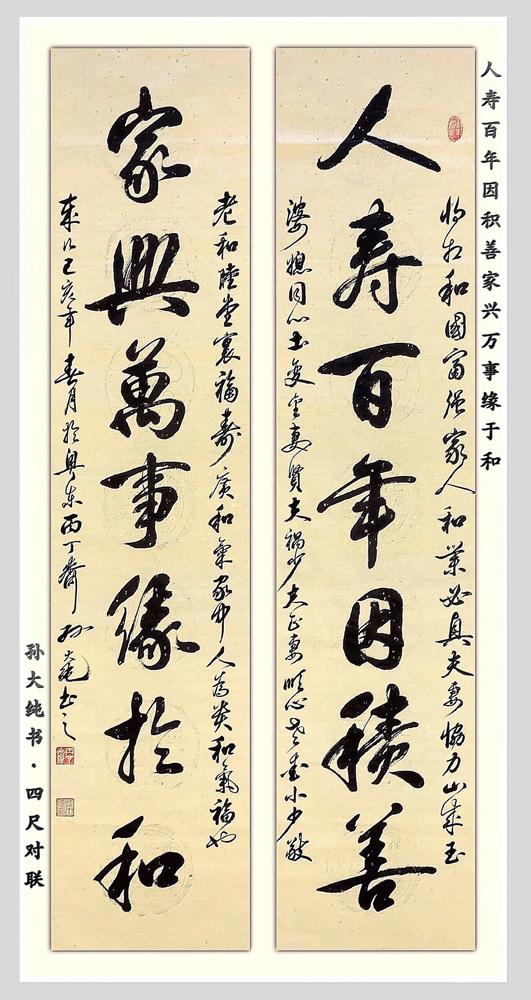 人寿百年因积善家兴万事缘于和
人壽百年因積善
将相和國富强家人和業必夫妻協力山成玉
婆媳同心土变金妻賢夫禍少夫正妻順心老愛小少敬
家興萬事缘於和
老和陸堂裏福壽廣和氣家中人為和氣福也
歲次己亥年春月於粤东西丁齋孙書之
孙大纯书·四尺对联